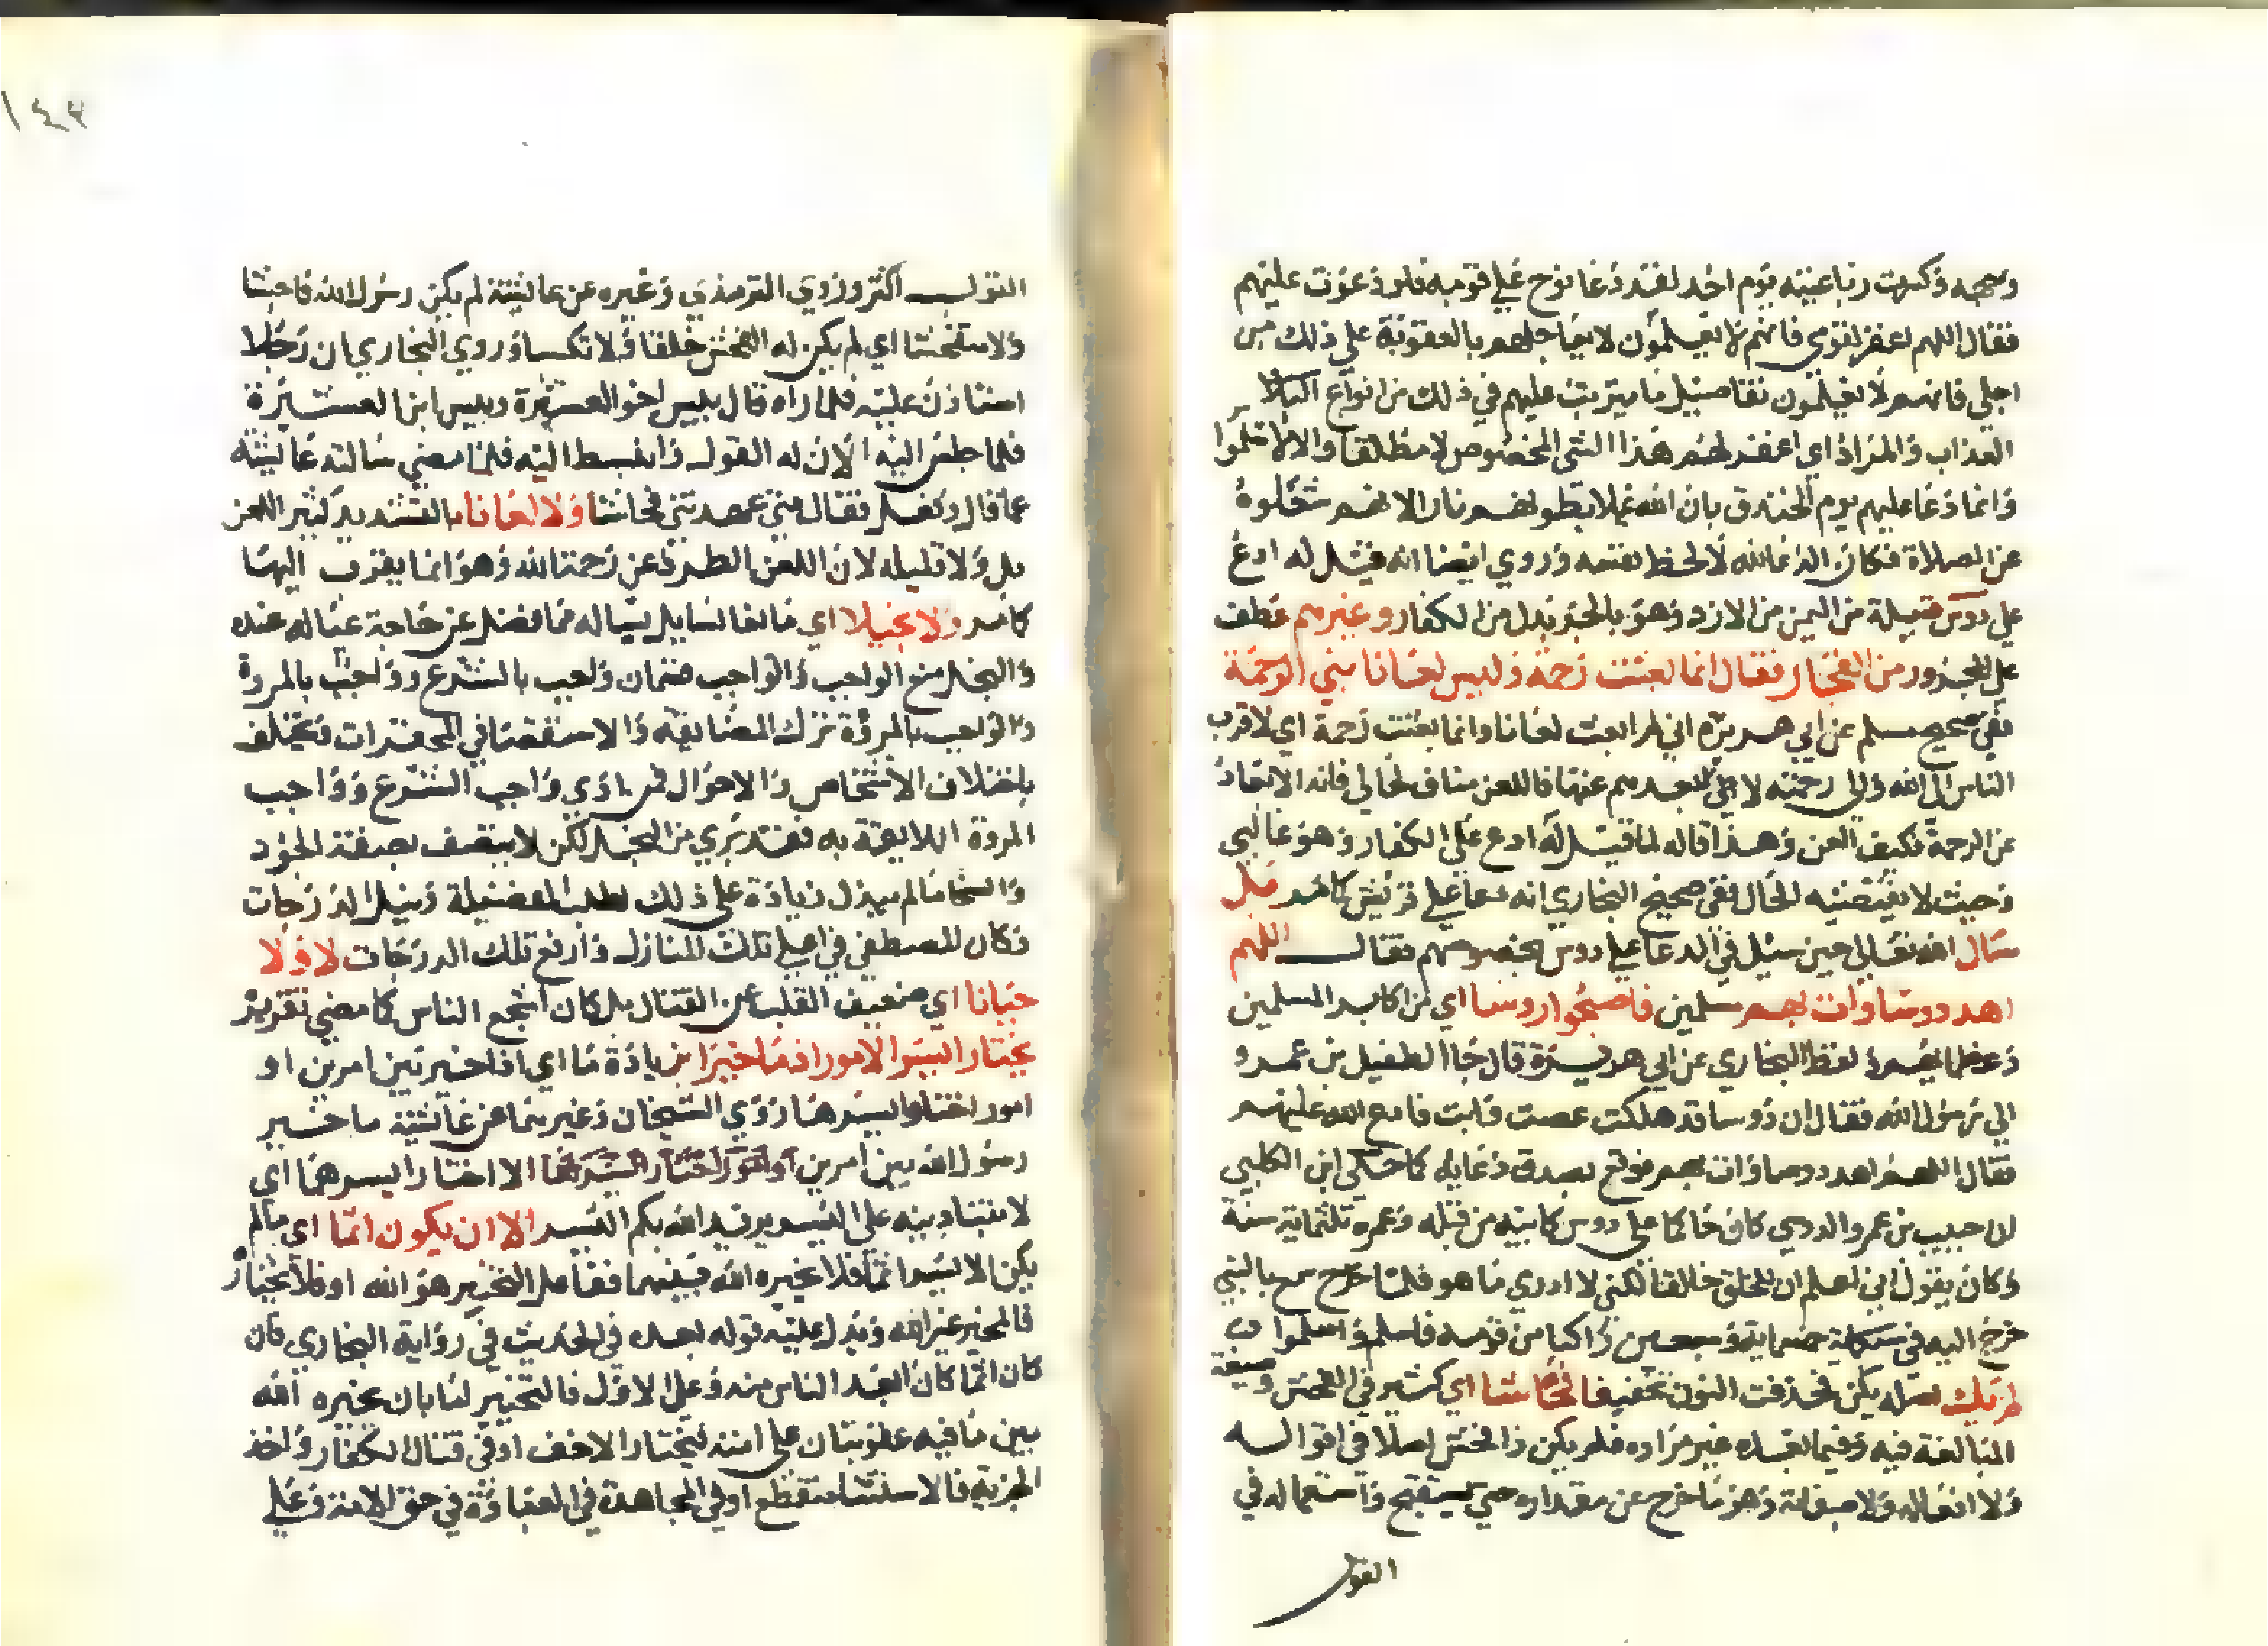 وجهه وكسرت رباعيته يوم احد لقد دعا نوح علي قومه فلو دعوت عليهم
فقال اللهم اغفر لقومي فانهم لا يعلمون لا يعاجلهم بالعقوبة علي ذلك من
اجلي فانهم لا يعلمون تفاصيل ما يترتب عليهم في ذلك من انواع
العذاب والمراد اي اغفر لهم هذا الشي المخصوص لا مطلقا والا لاسلموا
وانما دعا عليهم يوم الخندق بان الله يملا بطونهم نارا لانهم شغلوه
عن الصلاة فكان الدعا لله لا لحظ نفسه وروي ايضا انه قيل له ادع
علي دوس قبيلة من اليمن من الازد وهو بالجر بدل من الكفار وغيرهم عطف
علي المجرور من الفجار فقال انما بعثت رحمة وليس لعانا نبي الرحمة
ففي صحيح مسلم عن ابي هريرة اني لم ابعث لعانا وانما بعثت رحمة اي لاقرب
الناس الي الله والي رحمته لا لابعدهم عنها فاللعن مناف لحالي فانه الابعاد
عن الرحمة فكيف العن وهذا قاله لما قيل له ادع علي الكفار وهو غالبي
وحيث لا يقتضيه الحال ففي صحيح البخاري انه دعا علي قريش كما مر بل
سال الله تعالي حين سئل في الدعا علي دوس بخصوصهم فقال اللهم
اهد دوسا وات بهم مسلمين فاصبحوا روسا اي من اكابر المسلمين
وعظمائهم ولفظ البخاري عن ابي هريرة قال جا الطفيل بن عمرو
الي رسول الله فقال ان دوسا قد هلكت عصت وابت فادع الله عليهم
فقال اللهم اهد دوسا وات بهم فوقع بصدق دعايه كما حكي ابن الكلبي
ان حبيب بن عمرو الدوسي كان حاكما علي دوس كابيه من قبله وعمره ثلثماية سنة
وكان يقول اني لاعلم ان للخلق خالقا لكني لا ادري ما هو فلما خرج سمع بالنبي
خرج اليه في وسبعين راكبا من قومه فاسلم واسلموا
لم يك اصله يكن فحذفت النون تخفيفا فحاشا اي كثير في الفحش وصيغة
المبالغة فيه وفيما بعده غير مراده فلم يكن ذا فحش اصلا في اقواله
ولا افعاله ولا صفاته وهو ما خرج عن مقداره حتي يستقبح واستعماله في
القول
١٤٢
القول اكثر وروي الترمذي وغيره عن عائشة لم يكن رسول الله فاحشا
ولا متفحشا اي لم يكن له الفحش خلقا ولا تكسبا وروي البخاري ان رجلا
استاذن عليه فلما راه قال بيس اخو العشيرة وبيس ابن العشيرة
فلما جلس اليه الان له القول وانبسط اليه فلما مضي سالته عائشة
عما قال وفعل فقال متي عهدتني فحاشا ولا لعانا بالتشديد كثير اللعن
بل ولا قليله لان اللعن الطرد عن رحمة الله وهو انما يقرب اليها
كما مر ولا بخيلا اي مانعا لسايل يساله مما يفضل عن حاجة عياله عنده
والبخل منع الواجب والواجب قسمان واجب بالشرع وواجب بالمروة
والواجب بالمروة ترك المضايقة والاستقصا في المحقرات ويختلف
باختلاف الاشخاص والاحوال فمن ادي واجب الشرع وواجب
المروة اللايقة به فقد بري من البخل لكن لا يتصف بصفة الجود
والسخا ما لم يبذل زيادة علي ذلك لطلب الفضيلة ونيل الدرجات
وكان المصطفي في اعلي تلك المنازل وارفع تلك الدرجات لا ولا
جبانا اي ضعيف القلب عن القتال بل كان اشجع الناس كما مضي تقريره
يختار ايسر الامور اذ ما خيرا بزيادة ما اي اذا خير بين امرين او
امور اختار ايسرها روي الشيخان وغيرهما عن عائشة ما خير
رسول الله بين امرين الا اختار ايسرهما اي
لا الي اليسر يريد الله بكم اليسر الا ان يكون اثما اي ما لم
يكن الايسر اثما فلا يخيره الله بينهما ففاعل التخيير هو الله او فلا يختار
فالمخير غير الله ويدل عليه قوله بعده في الحديث في رواية البخاري فان
كان اثما كان ابعد الناس منه وعلي الاول فالتخيير لنا بان يخيره الله
بين ما فيه عقوبتان علي امته ليختار الاخف او في قتال الكفار واخذ
الجزية فالاستثنا منقطع او في المجاهدة في العبادة في حق الامة وعلي